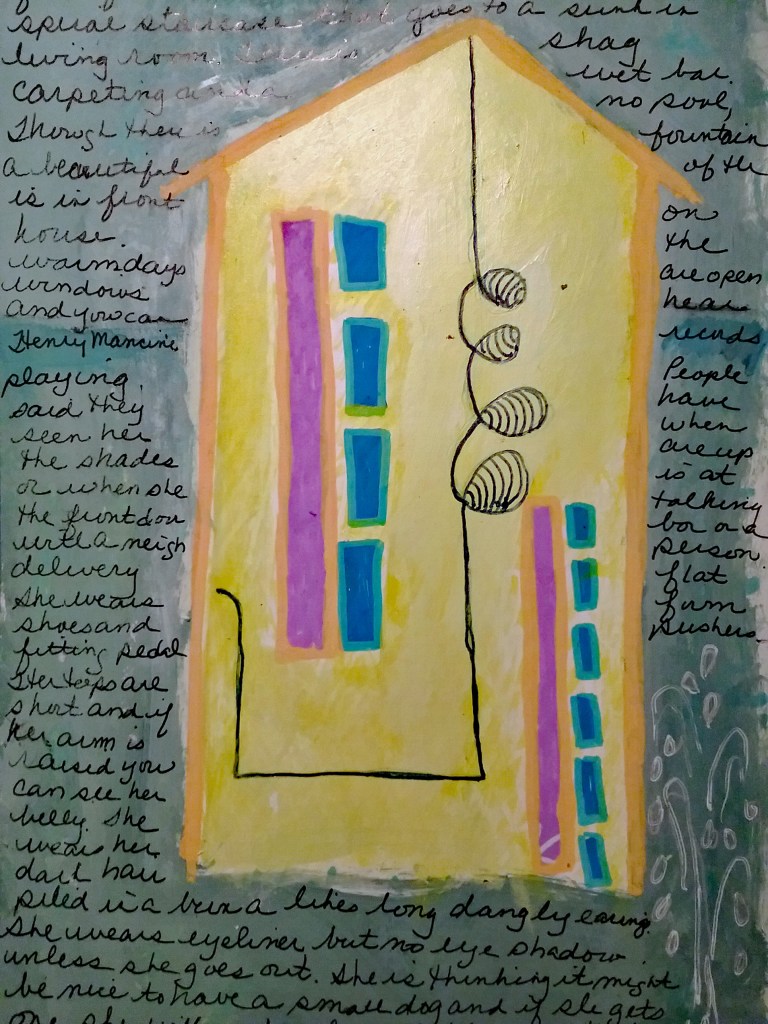 spiral staircase that goes to a sunk in
living room. There is shag
carpeting and a wet bar.
Though there is no pool,
a beautiful fountain
is in front of the
house. on
warm days the
windows are open
and you can hear
Henry Mancini records
playing. People
said they have
seen her when
the shades are up
or when she is at
the front door talking
with a neigh bor or a
delivery person.
She wears flat
shoes and form
fitting pedal pushers.
Her tops are
short and if
her arm is
raised you
can see her
belly. She
wears her
dark hair
piled in a bun a likes long dangly earing.
She wears eyeliner but no eye shadow
unless she goes out. She is thinking it might
be nice to have a small dog and if she gets
one she will